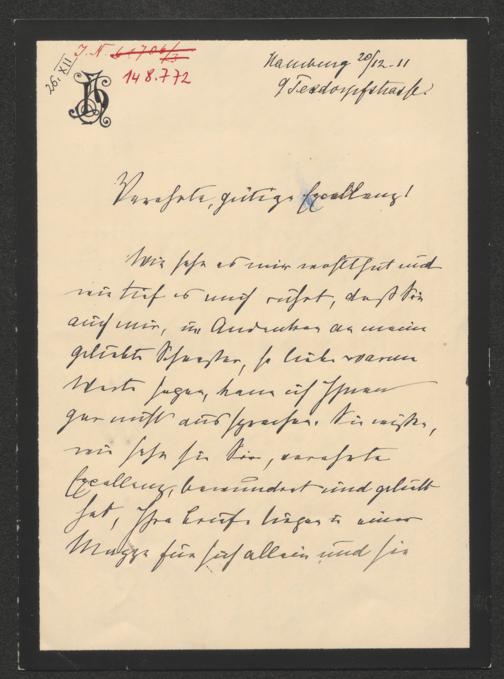 26. XII
I. N. 61706/3
148.772
JH
Hamburg 20/12 - 11
9 Tesdorpfstrasse.
Verehrte, gütige Excellenz!
Wie sehr es mir wohlthut und
wie tief es mich rührt, daß Sie
auch mir, im Andenken an meine
geliebte Schwester, so liebe warme
Worte sagen, kann ich Ihnen
gar nicht aussprechen. Sie wissen,
wie sehr sie Sie, verehrte
Excellenz, bewundert und geliebt
hat, Ihre Briefe liegen in einer
Mappe für sich allein und sie